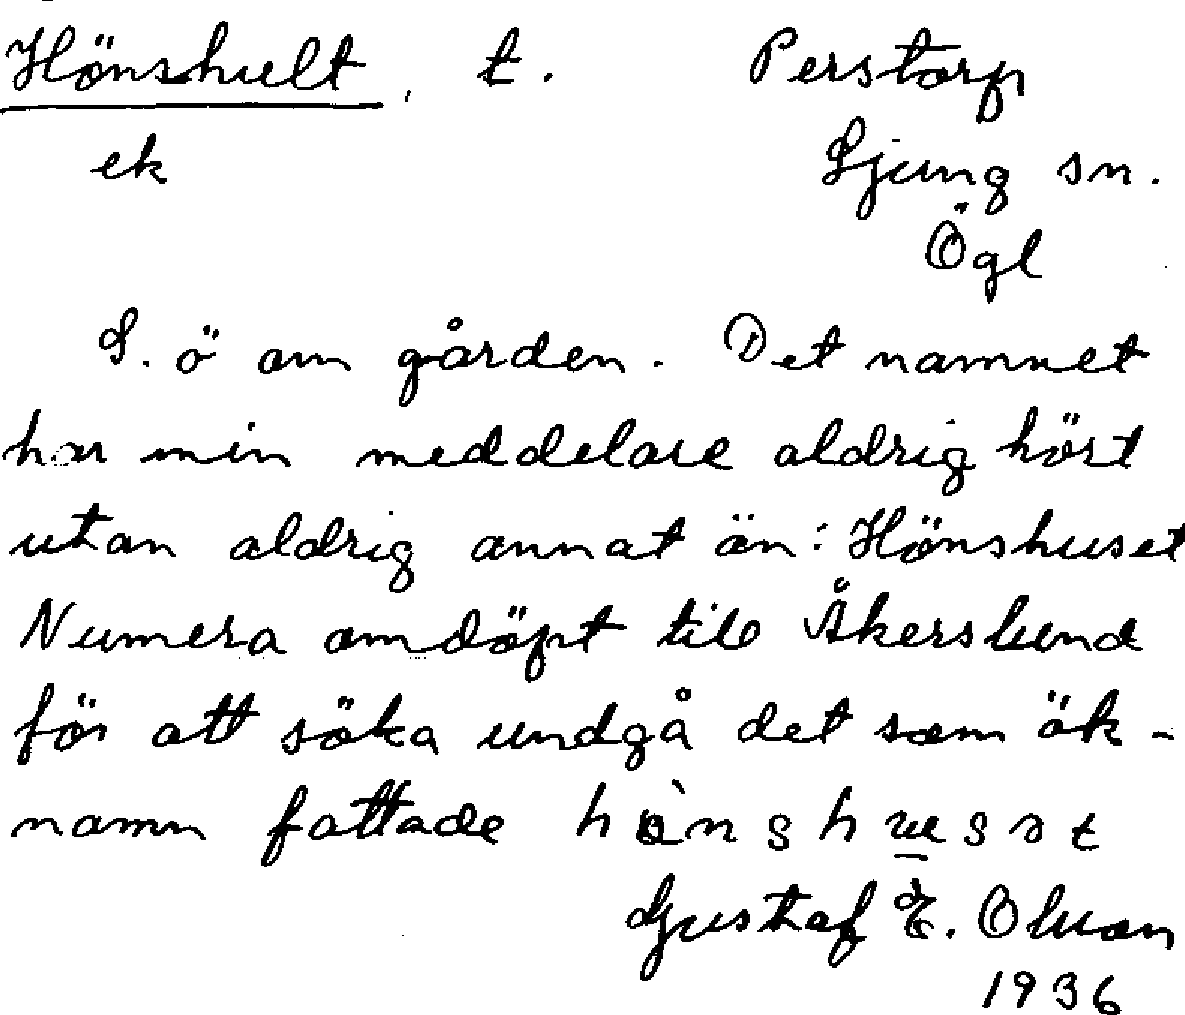 Hönshult, t. Perstorp
ek Ljung sn.
Ögl
S. ö om gården. Det namnet
har min meddelare aldrig hört
utan aldrig annat än: Hönshuset
Numera omdöpt till Åkerslund
för att söka undgå det som ök-
namn fattade
Gustaf E. Olsson
1936